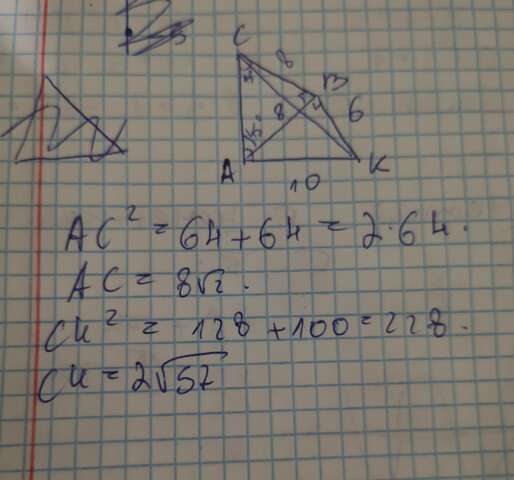 C
8
B
8
6
A
10
K
AC² = 64 + 64 = 2·64.
AC = 8√2.
CK² = 128 + 100 = 228.
CK = 2√57